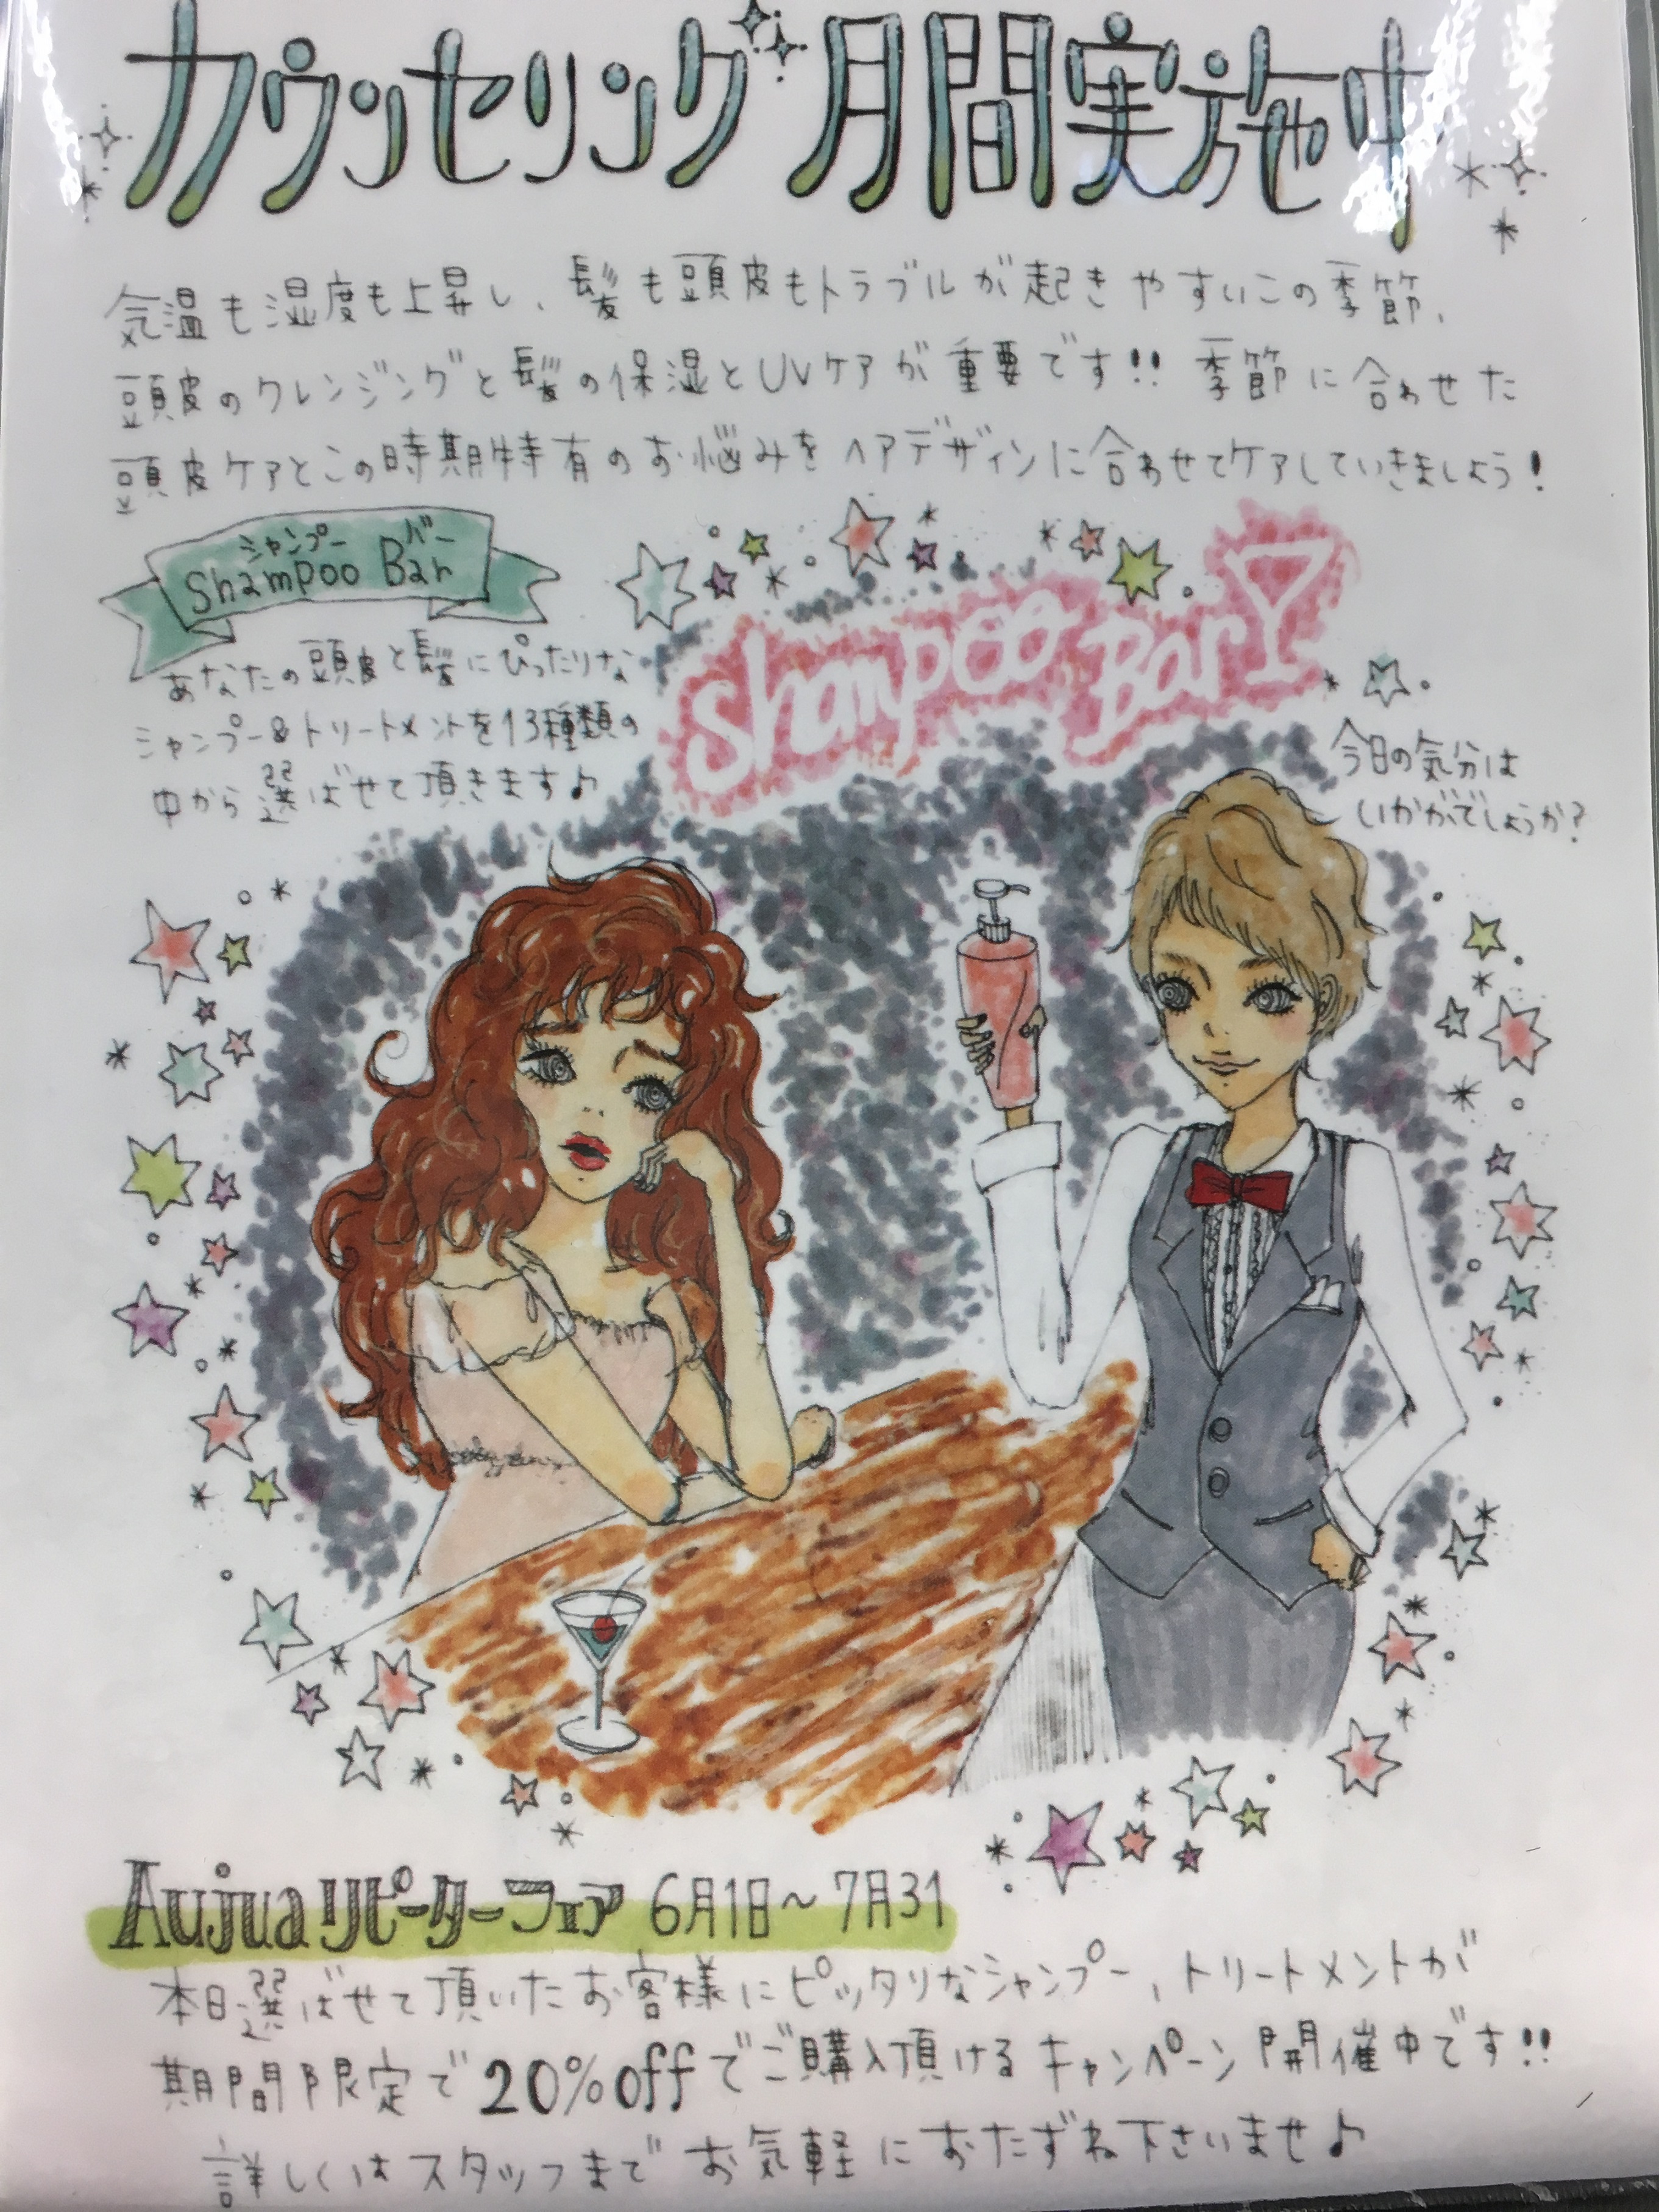 カウンセリング月間実施中
気温も湿度も上昇し、髪も頭皮もトラブルが起きやすいこの季節、
頭皮のクレンジングと髪の保湿とUVケアが重要です!! 季節に合わせた
頭皮ケアとこの時期特有のお悩みをヘアデザインに合わせてケアしていきましょう!
シャンプー バー
Shampoo Bar
あなたの頭皮と髪にぴったりな
シャンプー&トリートメントを13種類の
中から選ばせて頂きます♪
Shampoo Bar
今日の気分は
いかがでしょうか?
Aujuaリピーターフェア 6月1日〜7月31
本日選ばせて頂いたお客様にピッタリなシャンプー、トリートメントが
期間限定で20%offでご購入頂けるキャンペーン開催中です!!
詳しくはスタッフまでお気軽におたずね下さいませ♪